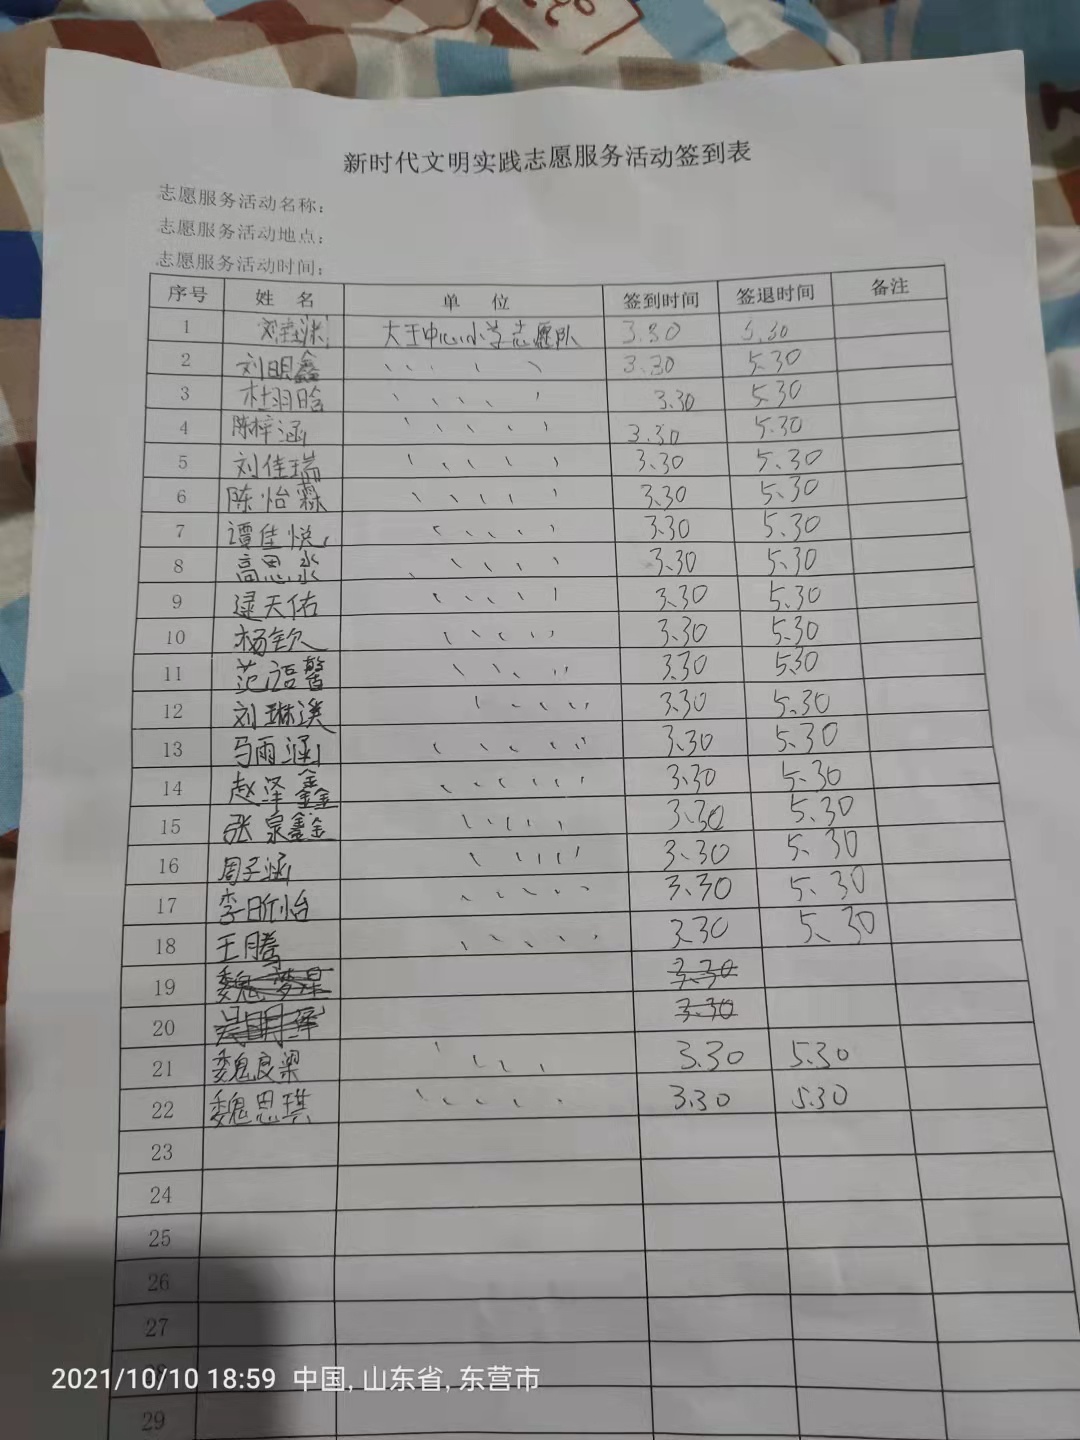 新时代文明实践志愿服务活动签到表
志愿服务活动名称：
志愿服务活动地点：
志愿服务活动时间：
序号 姓 名 单 位 签到时间 签退时间 备注
1 大王中心小学志愿队 3.30 5.30
2 刘明鑫 、、、、、 3.30 5.30
3 杜羽晗 、、、、、 3.30 5.30
4 陈梓涵 、、、、、 3.30 5.30
5 刘佳瑞 、、、、、 3.30 5.30
6 陈怡霖 、、、、、 3.30 5.30
7 谭佳悦 、、、、、 3.30 5.30
8 高思 、、、、、 3.30 5.30
9 逯天佑 、、、、、 3.30 5.30
10 杨钦 、、、、、 3.30 5.30
11 范语馨 、、、、 3.30 5.30
12 刘琳溪 、、、、、 3.30 5.30
13 马雨涵 、、、、、、 3.30 5.30
14 赵泽鑫 、、、、、、 3.30 5.30
15 张泉鑫 、、、、、 3.30 5.30
16 周子涵 、、、、、 3.30 5.30
17 李昕怡 、、、、、 3.30 5.30
18 王腾 、、、、、 3.30 5.30
19 3.30
20 3.30
21 魏良梁 、、、、 3.30 5.30
22 魏思琪 、、、、、 3.30 5.30
23
24
25
26
27
2021/10/10 18:59 中国,山东省,东营市
29